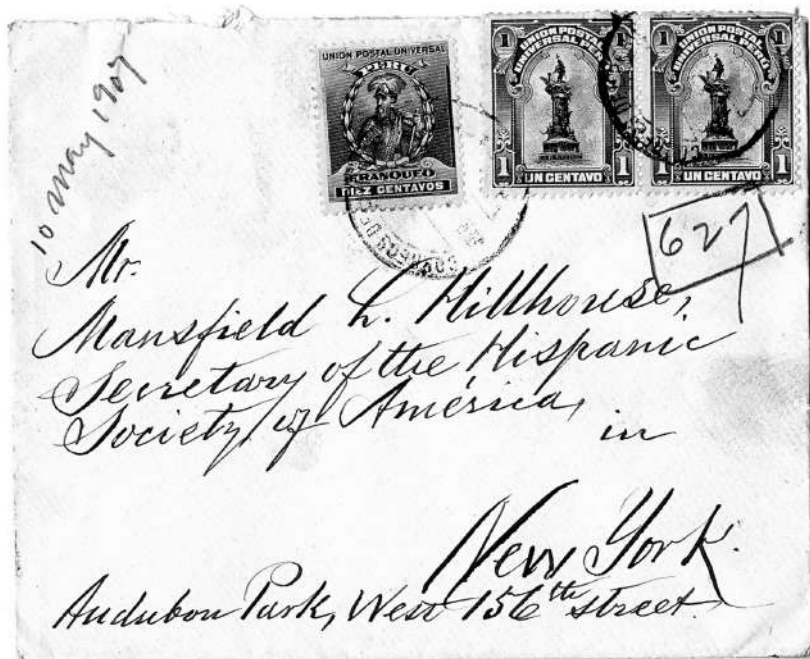 10 May 1907
UNION POSTAL UNIVERSAL
PERU
FRANQUEO
DIEZ CENTAVOS
1 1
UNION POSTAL
UNIVERSAL PERU
1 1
UN CENTAVO
1 1
UNION POSTAL
UNIVERSAL PERU
1 1
UN CENTAVO
CORREOS DE
627
Mr.
Mansfield L. Hillhouse,
Secretary of the Hispanic
Society of América,
in
New York.
Audubon Park, West 156th street.